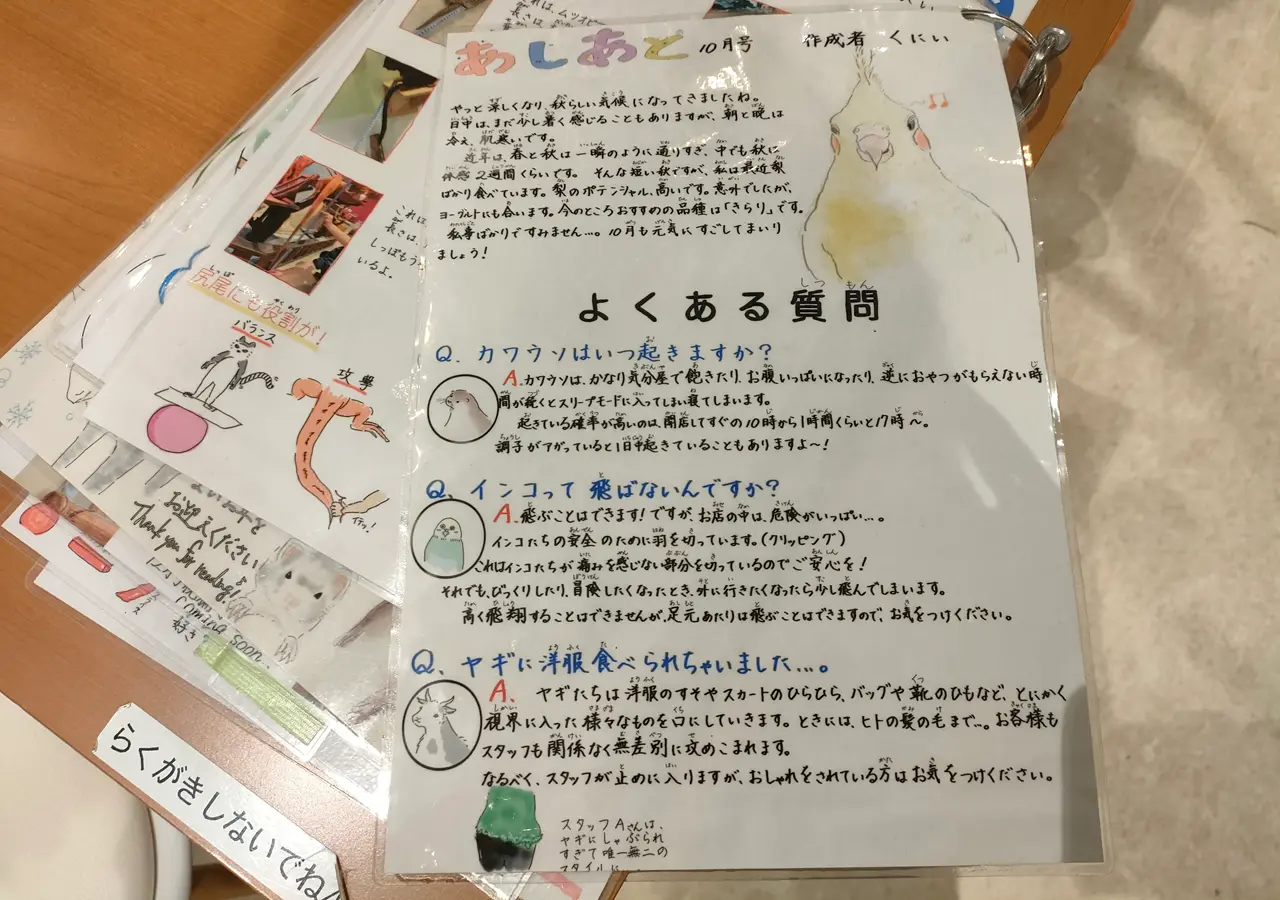 あしあと 10月号 作成者 くにい
やっと涼しくなり、秋らしい気候になってきましたね。
日中は、まだ少し暑く感じることもありますが、朝と晩は
冷え、肌寒いです。
近年は、春と秋は一瞬のように通りすぎ、中でも秋に
体感2週間くらいです。 そんな短い秋ですが、私は最近梨
ばかり食べています。梨のポテンシャル、高いです。意外でしたが、
ヨーグルトにも合います。今のところおすすめの品種は「きらり」です。
私事ばかりですみません…。10月も元気にすごしてまいり
ましょう!
よくある質問
Q. カワウソはいつ起きますか?
A.カワウソは、かなり気分屋で飽きたり、お腹いっぱいになったり、逆におやつがもらえない時
間が続くとスリープモードに入ってしまい寝てしまいます。
起きている確率が高いのは、開店してすぐの10時から1時間くらいと17時〜。
調子がアがっていると1日中起きていることもありますよ〜!
Q. インコって 飛ばないんですか?
A.飛ぶことはできます!ですが、お店の中は、危険がいっぱい…。
インコたちの安全のために羽を切っています。(クリッピング)
これはインコたちが痛みを感じない部分を切っているのでご安心を!
それでも、びっくりしたり、冒険したくなったとき、外に行きたくなったら少し飛んでしまいます。
高く飛翔することはできませんが、足元あたりは飛ぶことはできますので、お気をつけください。
Q. ヤギに洋服食べられちゃいました…。
A. ヤギたちは洋服のすそやスカートのひらひら、バッグや靴のひもなど、とにかく
視界に入った様々なものを口にしていきます。ときには、ヒトの髪の毛まで…。お客様も
スタッフも関係なく無差別に攻めこまれます。
なるべく、スタッフが止めに入りますが、おしゃれをされている方はお気をつけください。
スタッフAさんは、
ヤギにしゃぶられ
すぎて唯一無二の
スタイルに…
これは
長さは、
しっぽもう
いるよ。
尻尾にも役割が!
バランス
攻撃
お迎えください
Thank you for reading!
coming soon.
好き
らくがきしないでね